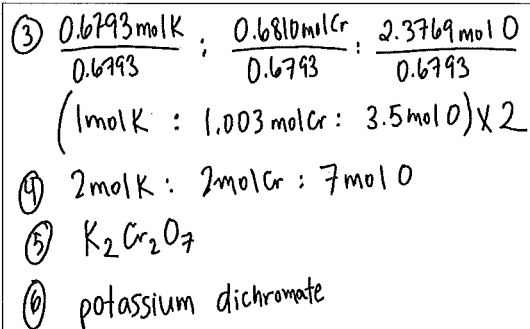 ③ 0.6793 mol K / 0.6793 : 0.6810 mol Cr / 0.6793 : 2.3769 mol O / 0.6793
(1mol K : 1.003 mol Cr : 3.5 mol O) X 2
④ 2mol K : 2mol Cr : 7 mol O
⑤ K₂Cr₂O₇
⑥ potassium dichromate